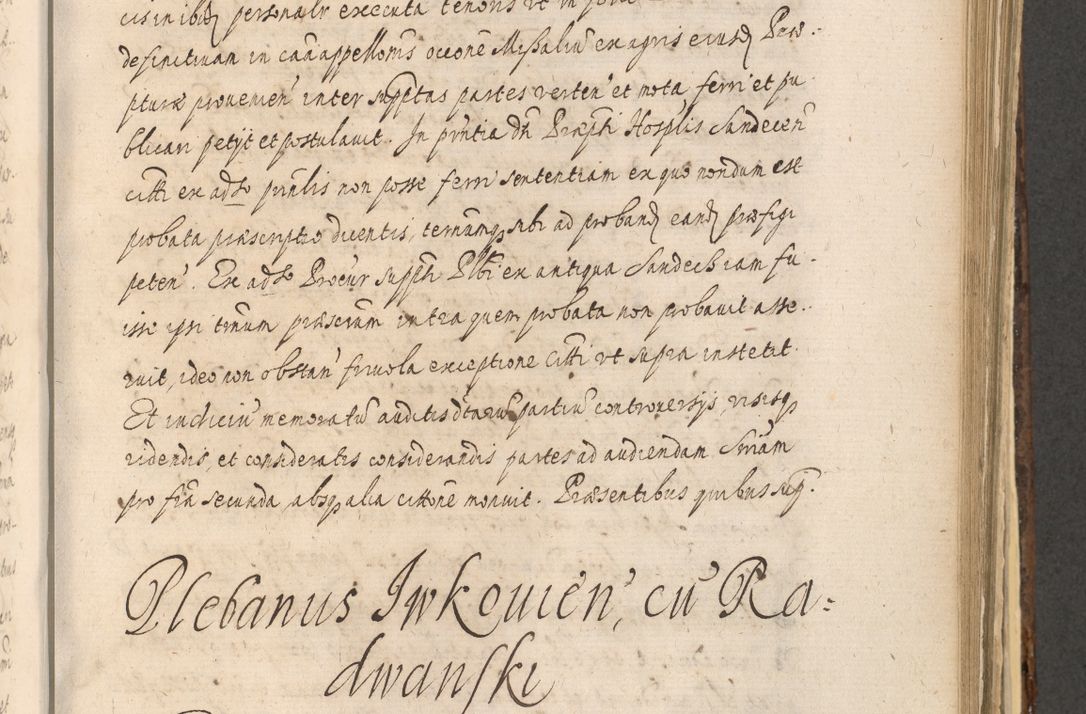 cis in ibid personalr executa tenoris vt in
definitiuam in cãa appellonis occone Missaliũ ex agris eiusd Præ-
pturæ prouenien inter supptas partes verten et mota ferri et pu
blicari petijt et postulauit. In pñtia Dñi Præpti Hosplis Sandecen
citti ex aduso pñnlis non posse ferri sententiam ex quo nondum est
probata præscriptio dicentis, terminumq sibi ad proband eand præfigi
peten. Ex aduso Procur suppti Plbi ex antiqua Sandech iam fu-
isse ipsi trnum præscium intra quem probata non probauit asse-
ruit, ideo non obstan friuola exceptione citti vt supra institit
Et iudiciũ memoratũ auditis dtarũ partiũ controuersijs, visisq
videndis, et consideratis considerandis partes ad audiendam Sñiam
pro fria secunda, absq alia cittone monuit. Præsentibus quibus sup.
Plebanus Iwkouien, cũ Ra-
dwanski